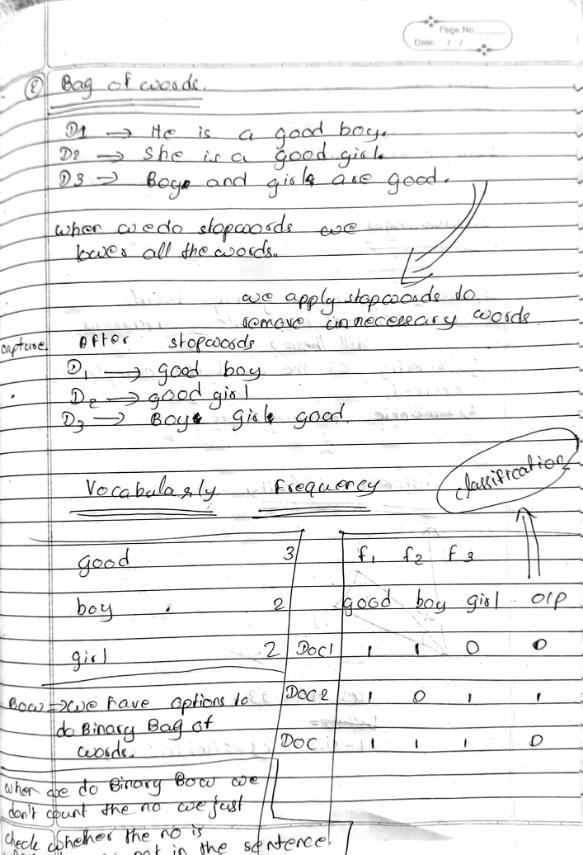 Page No.
Date: / /
② Bag of words.
D1 → He is a good boy.
D2 → She is a good girl.
D3 → Boy and girl are good.
when we do stopwords we
lower all the words.
we apply stopwords to
remove unnecessary words
capture. After stopwords
D1 → good boy
D2 → good girl
D3 → Boy girl good.
classification
Vocabulaşly Frequency
good 3 f1 f2 f3
boy 2 good boy girl O/P
girl 2 Doc1 1 1 0 0
BOW → we have options to Doc2 1 0 1 1
do Binary Bag of
words. Doc 1 1 1 0
when we do Binary BOW we
don't count the no we just
check whether the no is
not in the sentence.